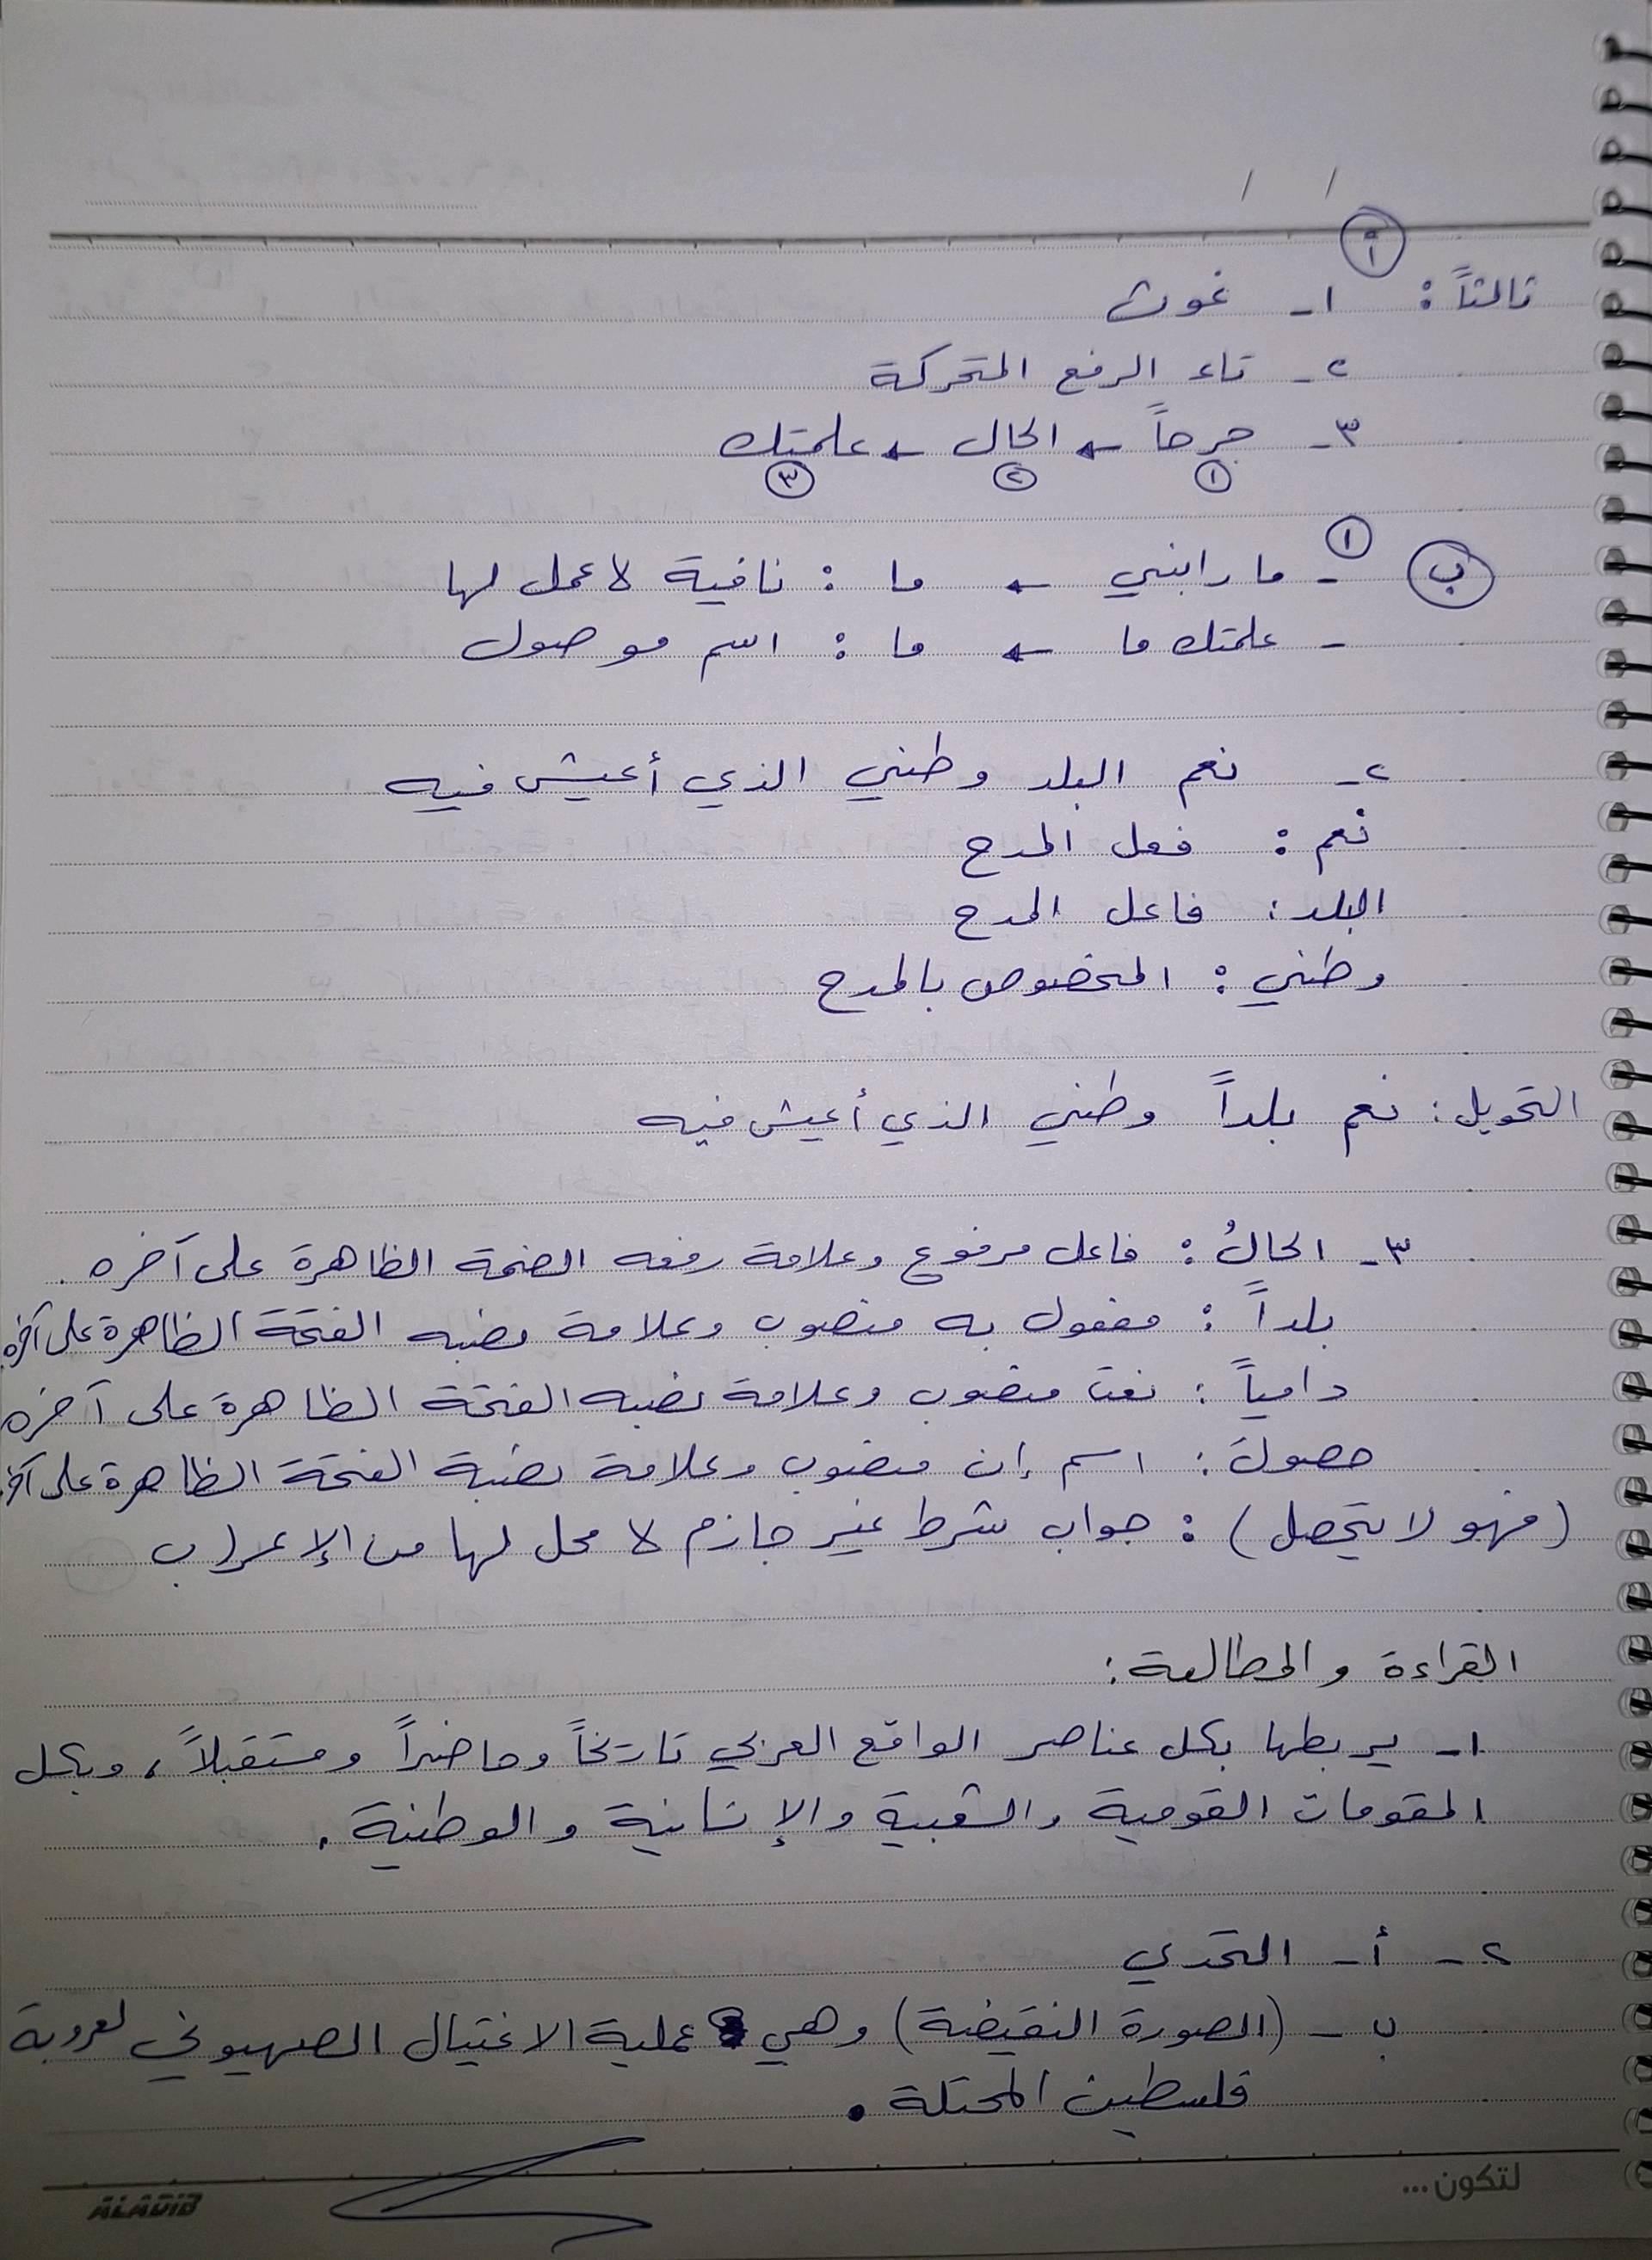 أ
ثالثاً : ١- غوث
٢- تاء الرفع المتحركة
٣- جرحاً ← الحال ← علمتك
١ ٢ ٣
ب ١ - ما رابني ← ما : نافية لا عمل لها
- علمتك ما ← ما : اسم موصول
٢- نعم البلد وطني الذي أعيش فيه
نعم : فعل المدح
البلد : فاعل المدح
وطني : المخصوص بالمدح
التحويل : نعم بلداً وطني الذي أعيش فيه
٣- الحالُ : فاعل مرفوع وعلامة رفعه الضمة الظاهرة على آخره .
بلداً : مفعول به منصوب وعلامة نصبه الفتحة الظاهرة على آخره
دامياً : نعت منصوب وعلامة نصبه الفتحة الظاهرة على آخره
حصولَ : اسم إن منصوب وعلامة نصبة الفتحة الظاهرة على آخره
(فهو لا يتحصل) : جواب شرط غير جازم لا محل لها من الإعراب
القراءة والمطالعة :
١- يربطها بكل عناصر الواقع العربي تاريخاً وحاضراً ومستقبلاً ، وبكل
المقومات القومية والشعبية والإنسانية والوطنية .
٢- أ- التحدي
ب- (الصورة النقيضة) وهي عملية الاغتيال الصهيوني لعروبة
فلسطين المحتلة .
لتكون...
ALADIB